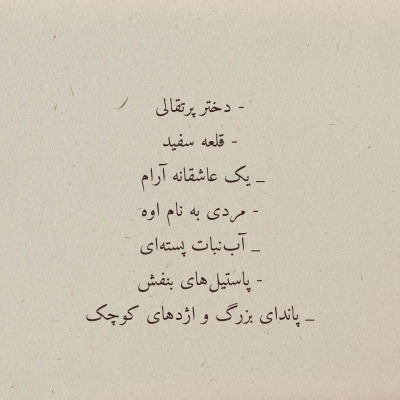 - دختر پرتقالی
- قلعه سفید
_ یک عاشقانه آرام
- مردی به نام اوه
_ آب‌نبات پسته‌ای
- پاستیل‌های بنفش
_ پاندای بزرگ و اژدهای کوچک